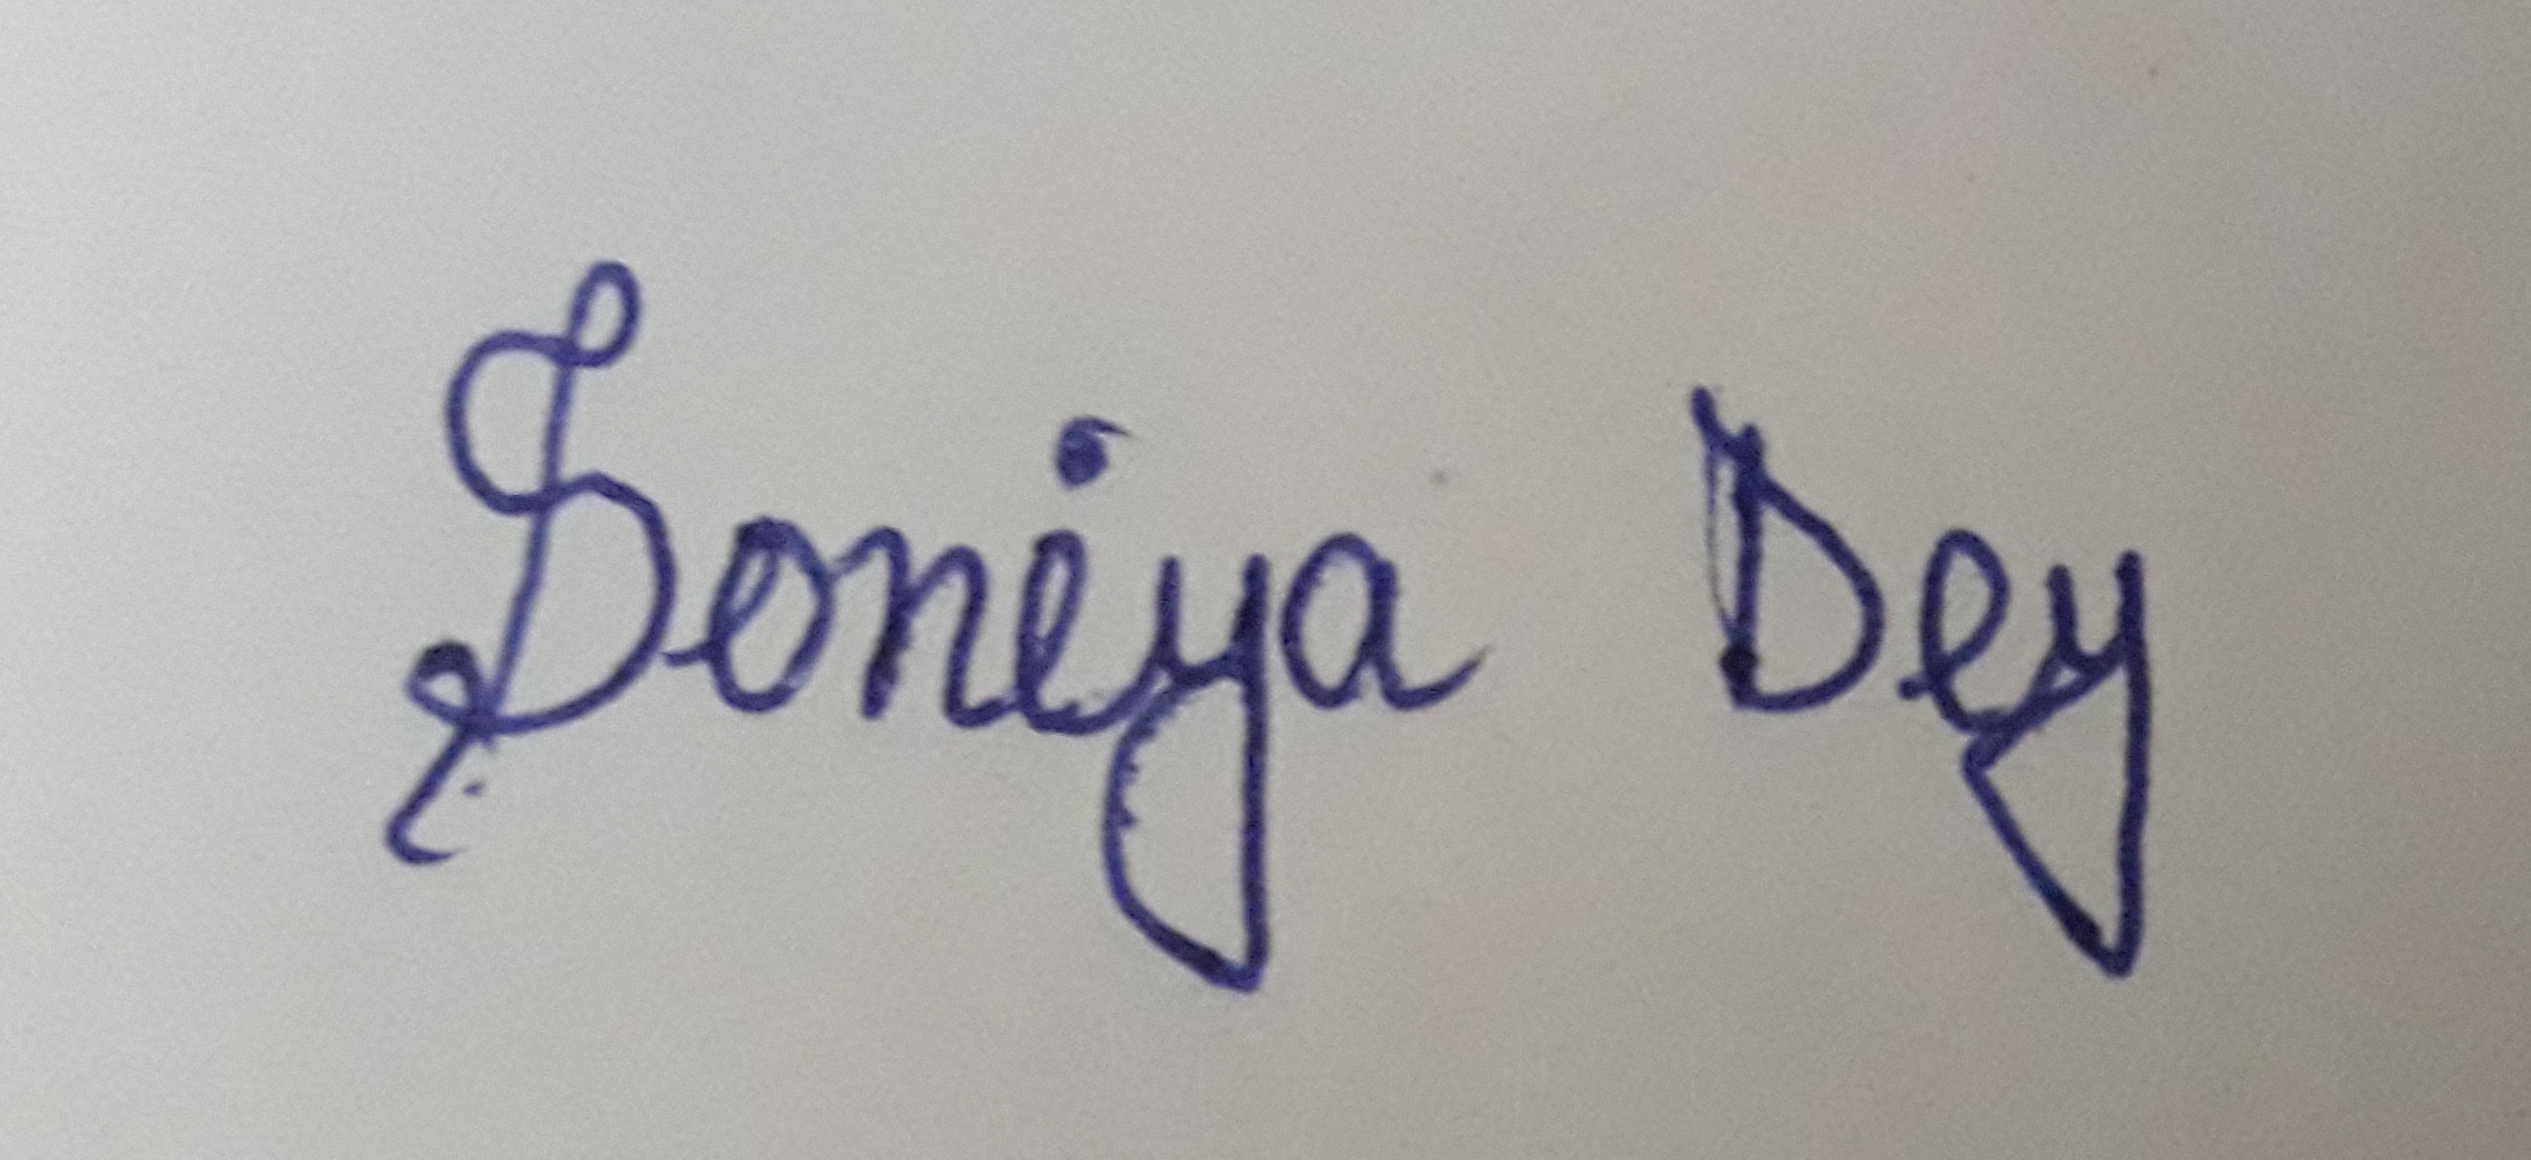 Soniya Dey